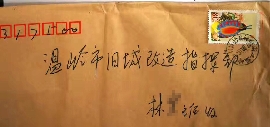 317500
温岭市旧城改造指挥部
林 收